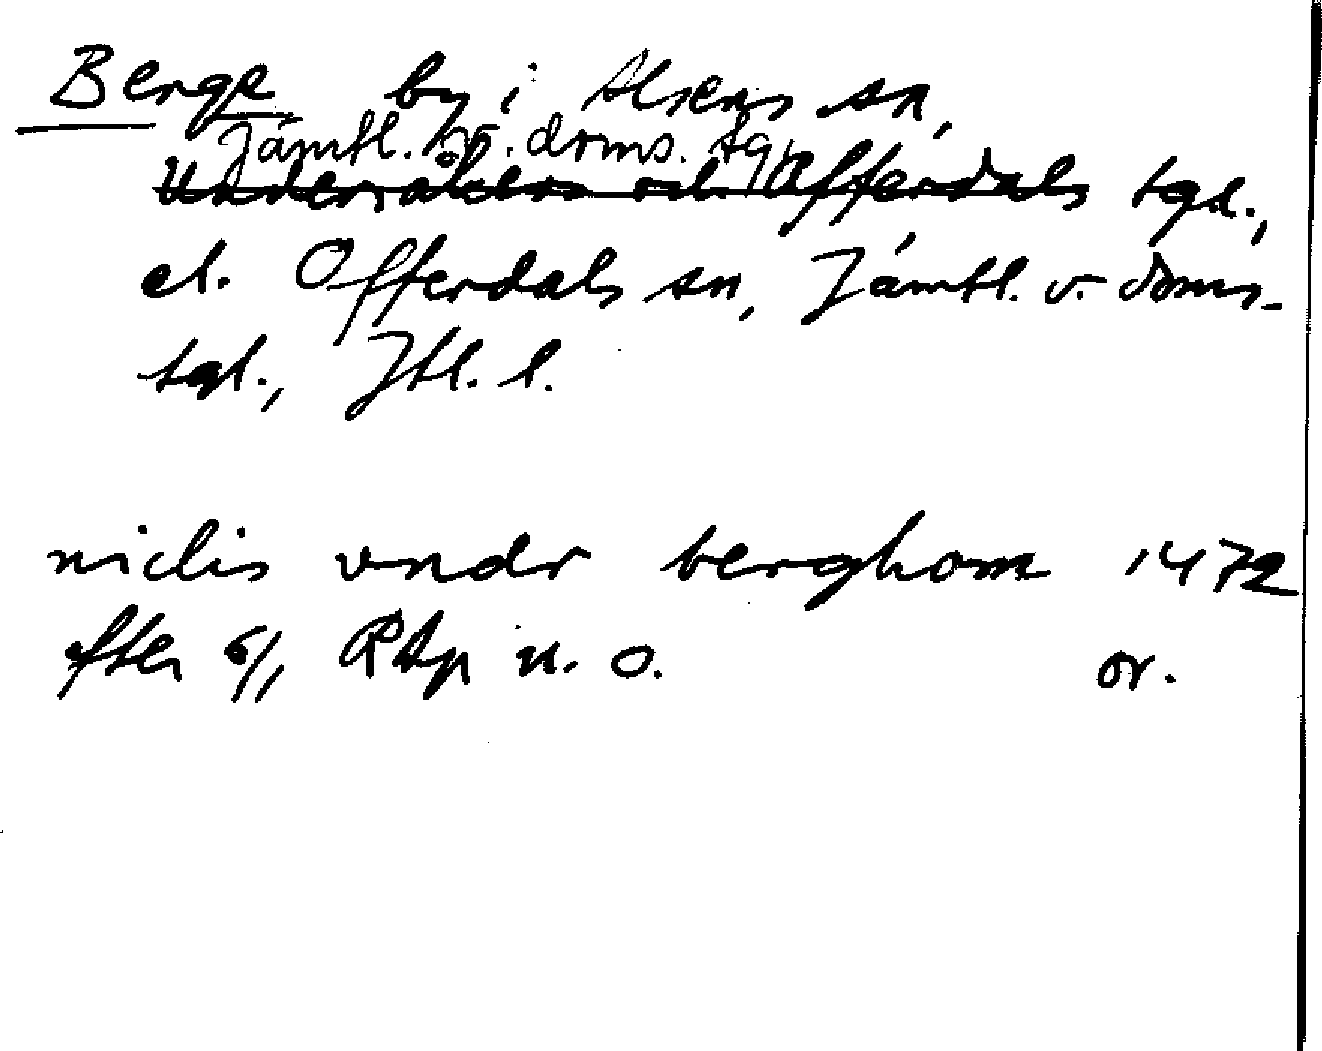 Berge, by i Alsens sn,
Jämtl. v. doms. tg.
Undersåkers och Offerdals tgl.,
el. Offerdals sn, Jämtl. v. doms-
tgl., Jtl. l.
niclis vndr berghom 1472
efter 6/1 RAp n. o. or.